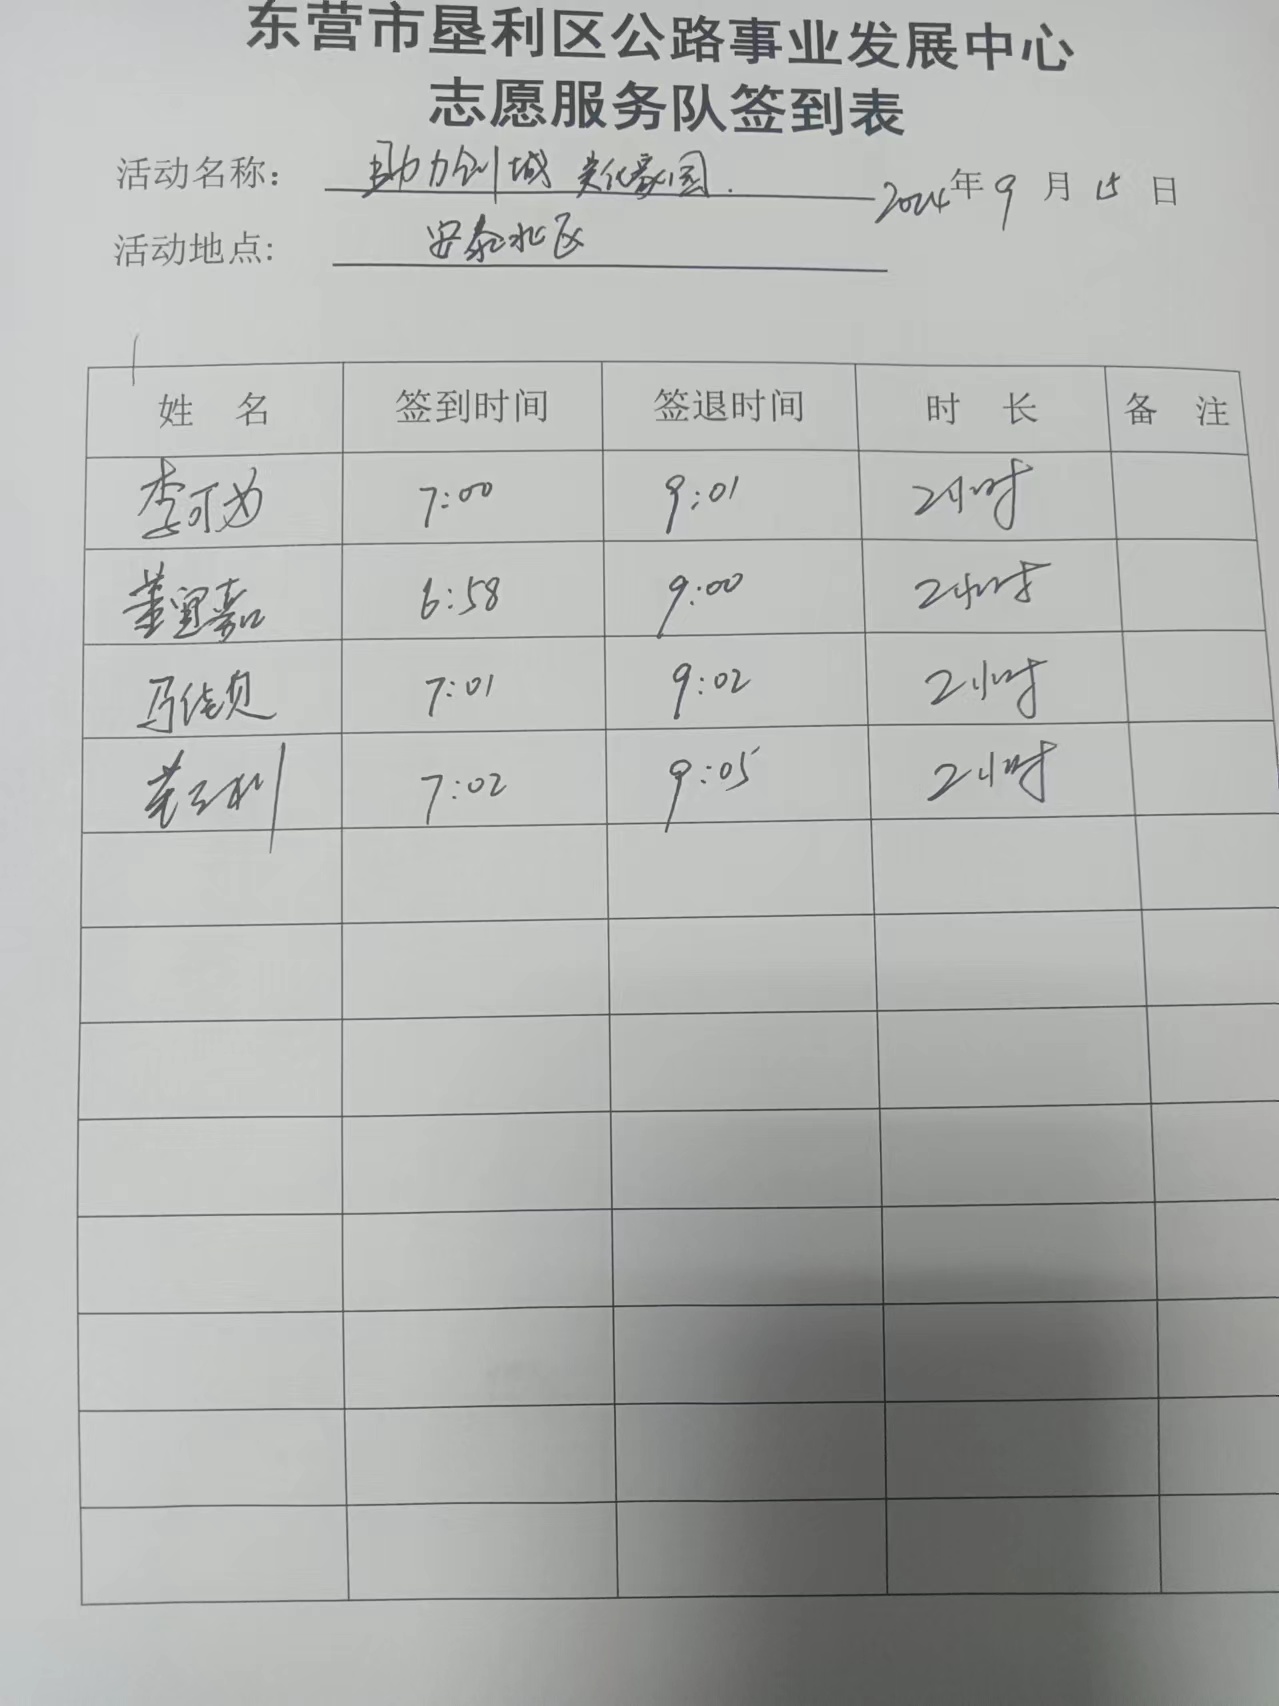 东营市垦利区公路事业发展中心
志愿服务队签到表
活动名称： 助力创城 美化家园. 2024年9月15日
活动地点: 安泰北区
姓 名 签到时间 签退时间 时 长 备 注
李可为 7:00 9:01 2小时
董宜嘉 6:58 9:00 2小时
马 7:01 9:02 2小时
7:02 9:05 2小时